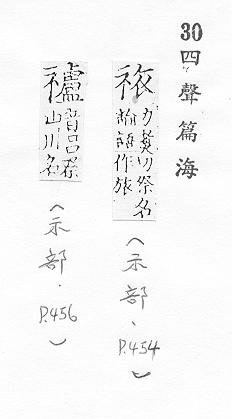 30 四聲篇海
祣
力煑切祭名
論語作旅
（示部、P.454）
𥜜
音吕祭
山川名
（示部．P.456）